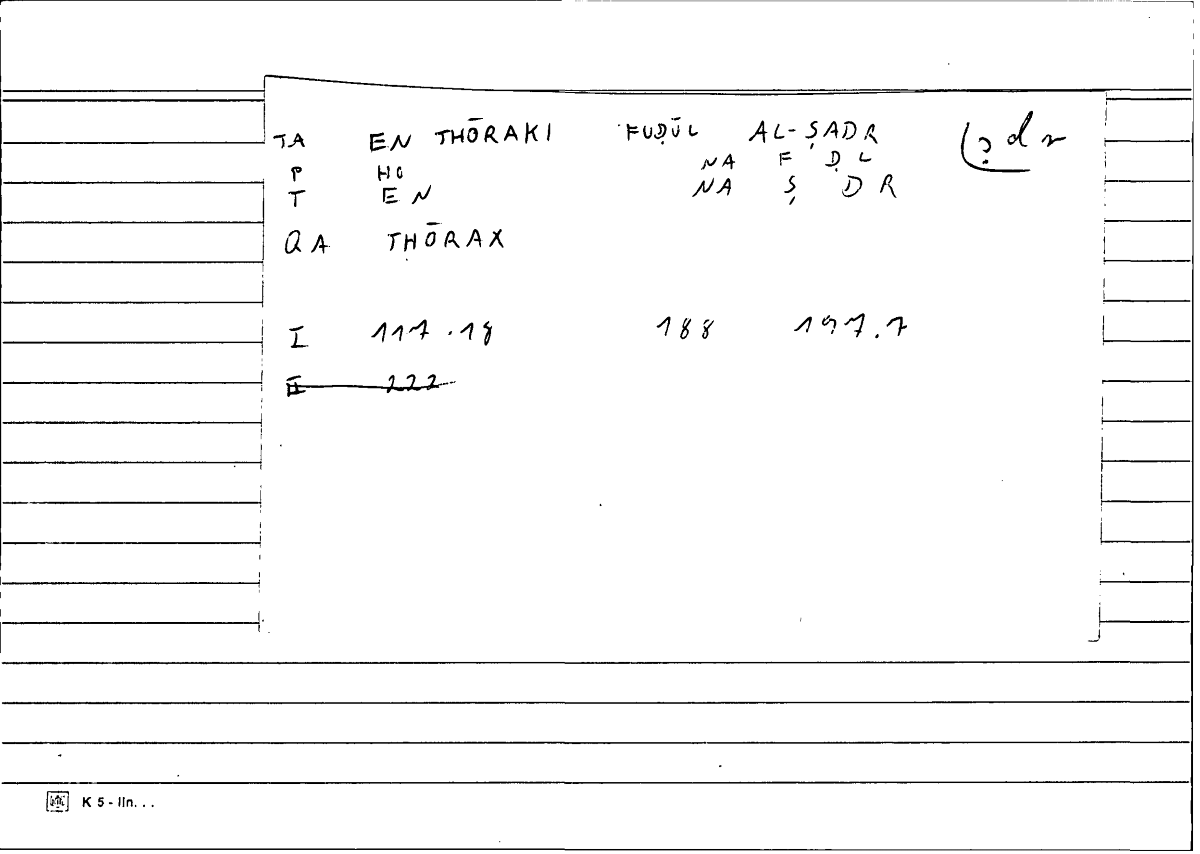 TA EN THŌRAKI FUḌŪL AL-ṢADR ṣdr
P HO NA F Ḍ L
T EN NA Ṣ D R
QA THŌRAX
I 117.18 188 197.7
II 222
K 5 - lin. . .